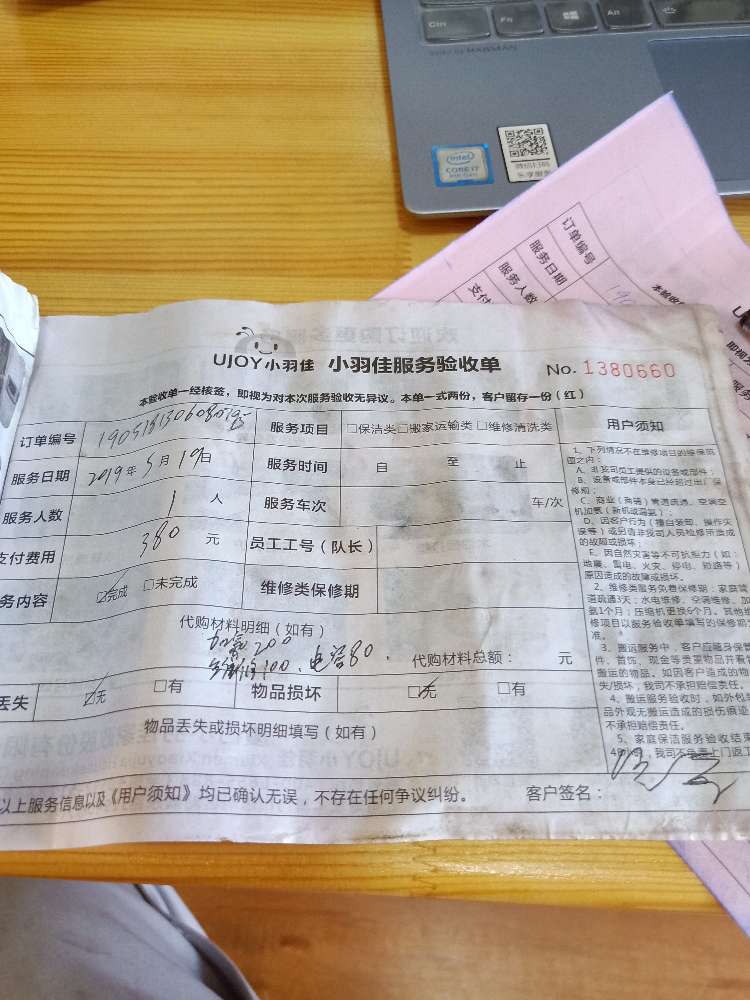 Ctrl Fn Alt
HARMAN
intel
CORE i7
微信扫码
乐享服务
订单编号
服务日期
服务人数
支付
190
本验收
UJOY小羽佳 小羽佳服务验收单 No. 1380660
本验收单一经核签，即视为对本次服务验收无异议。本单一式两份，客户留存一份（红）
订单编号 服务项目 □保洁类□搬家运输类□维修清洗类 用户须知
服务日期 2019年5月19日 服务时间 自 至 止
服务人数 1 人 服务车次 车/次
支付费用 380 元 员工工号（队长）
务内容 ☑完成 □未完成 维修类保修期
代购材料明细（如有）
加氟200
100、电容80. 代购材料总额： 元
丢失 ☑无 □有 物品损坏 ☑无 □有
物品丢失或损坏明细填写（如有）
以上服务信息以及《用户须知》均已确认无误，不存在任何争议纠纷。 客户签名：
1、下列情况不在维修项目的维保范
围之内：
A、非我司员工提供的设备或部件；
B、设备或部件本身已经超过出厂保
修期；
C、商业（商铺）管道疏通、空调空
机加氨（新机或漏氨）；
D、因客户行为（擅自装卸、操作失
误等）或另请非我司人员检修所造成
的故障或损坏；
E、因自然灾害等不可抗拒力（如：
地震、雷电、火灾、停电、短路等）
原因造成的故障或损坏。
2、维修类服务免费保修期：家庭管
道疏通3天；水电维修、空调维修、加
氨1个月；压缩机更换6个月。其他维
修项目以服务验收单填写的保修期为
准。
3、搬运服务中，客户应随身保管
件、首饰、现金等贵重物品并看管
搬运的物品。如因客户造成的物品
失/损坏，我司不承担赔偿责任。
4、搬运服务验收时，如外包装
品外观无搬运造成的损伤痕迹
不承担赔偿责任。
5、家庭保洁服务验收结束
48小时，我司不负责上门返工